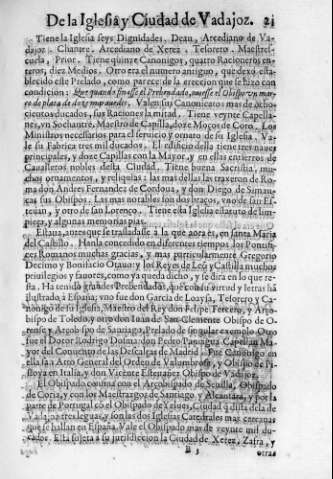 De la Iglesia y Ciudad de Vadajoz. 21
Tiene la Iglesia seys Dignidades. Dean, Arcediano de Va-
dajoz. Chantre, Arcediano de Xerez, Tesorero, Maestrel-
cuela, Prior. Tiene quinze Canonigos, quatro Racioneros en-
teros, diez Medios. Otro era el numero antiguo, que dexò esta-
blecido este Prelado, como parece de la ereccion que se hizo con
condicion: Que quando finasse el Prebendado, huviesse el Obispo un mar-
co de plata de diez marauedis. Valen sus Canonicatos mas de ocho-
cientos ducados, sus Raciones la mitad. Tiene veynte Capella-
nes, vn Sochantre, Maestro de Capilla, doze Moços de Coro. Los
Ministros necessarios para el seruicio y ornato de su Iglesia. Va-
le su Fabrica tres mil ducados. El edificio della tiene tres naues
principales, y doze Capillas con la Mayor, y en ellas entierros de
Caualleros nobles desta Ciudad. Tiene buena Sacristia, mu-
chos ornamentos, y reliquias: las mas dellas las traxeron de Ro-
ma don Andres Fernandez de Cordoua, y don Diego de Simancas
sus Obispos. Las mas notables son dos braços, vno de san Es-
teuan, y otro de san Lorenço. Tiene esta Iglesia estatuto de lim-
pieza, y algunas memorias pias.
Estaua, antes que se trasladasse a la que aora es, en santa Maria
del Castillo. Hanla concedido en diferentes tiempos los Pontifi-
ces Romanos muchas gracias, y mas particularmente Gregorio
Decimo y Bonifacio Otauo y los Reyes de Leõ y Castilla muchos
priuilegios y fauores, como ya queda dicho, y se dirà en lo que res-
ta. Ha tenido grandes Prebendados, que con su virtud y letras hã
ilustrado à España; vno fue don Garcia de Loaysa, Tesorero y Ca-
nonigo de su Iglesia, Maestro del Rey don Felipe Tercero, y Arço-
bispo de Toledo, y otro don Iuan de San-Clemente Obispo de O-
rense y Arçobispo de Santiago, Prelado de singular exemplo. Otro
fue el Dotor Rodrigo Dosma: don Pedro Paniagua Capellan Ma-
yor del Conuento de las Descalças de Madrid. Fue Canonigo en
ella
El Obispado confina con el Arçobispado de Seuilla, Obispado
de Coria, y con los Maestrazgos de Santiago y Alcantara, y por la
parte de Portugal cõ el Obispado de Yelues, Ciudad q̃ dista de la de
Vadajoz tres leguas, y son las dos Iglesias Catedrales mas cercanas
que se hallan en España. Vale el Obispado mas de veynte mil du-
cados. Esta sujeta a su jurisdicion la Ciudad de Xerez, Zafra, y
B 3 otras